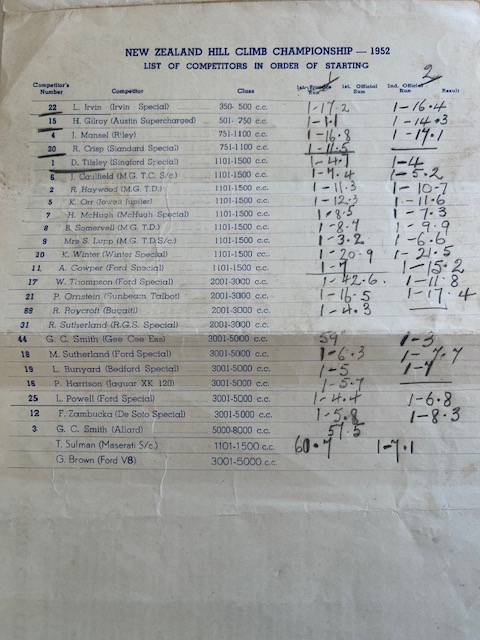 NEW ZEALAND HILL CLIMB CHAMPIONSHIP — 1952
LIST OF COMPETITORS IN ORDER OF STARTING
1 2
Competitor's Number Competitor Class 1st Run 1st. Official Run 2nd. Official Run Result
22 L. Irvin (Irvin Special) 350- 500 c.c. 1-17.2 1-16.4
15 H. Gilroy (Austin Supercharged) 501- 750 c.c. 1-1.1 1-14.3
4 J. Mansel (Riley) 751-1100 c.c. 1-16.8 1-17.1
20 R. Crisp (Standard Special) 751-1100 c.c. 1-11.5
1 D. Tilsley (Singford Special) 1101-1500 c.c. 1-4.1 1-4
6 J. Caulfield (M.G. T.C. S/c.) 1101-1500 c.c. 1-7.4 1-5.2
2 R. Haywood (M.G. T.D.) 1101-1500 c.c. 1-11.3 1-10.7
5 K. Orr (Jowett Jupiter) 1101-1500 c.c. 1-12.3 1-11.6
7 H. McHugh (McHugh Special) 1101-1500 c.c. 1-8.5 1-7.3
8 B. Somervell (M.G. T.D.) 1101-1500 c.c. 1-8.7 1-9.9
9 Mrs S. Lupp (M.G. T.D. S/c.) 1101-1500 c.c. 1-3.2 1-6.6
10 K. Winter (Winter Special) 1101-1500 cc. 1-20.9 1-21.5
11 A. Cowper (Ford Special) 1101-1500 c.c. 1-7 1-15.2
17 W. Thompson (Ford Special) 2001-3000 c.c. 1-42.6. 1-11.8
21 P. Ornstein (Sunbeam Talbot) 2001-3000 c.c. 1-16.5 1-17.4
88 R. Roycroft (Bugatti) 2001-3000 c.c. 1-4.3
31 R. Sutherland (R.G.S. Special) 2001-3000 c.c.
44 G. C. Smith (Gee Cee Ess) 3001-5000 c.c. 59" 1-3
18 M. Sutherland (Ford Special) 3001-5000 c.c. 1-6.3 1-7.7
19 L. Bunyard (Bedford Special) 3001-5000 c.c. 1-5 1-7
16 P. Harrison (Jaguar XK 120) 3001-5000 c.c. 1-5.7
25 L. Powell (Ford Special) 3001-5000 c.c. 1-4.4 1-6.8
12 F. Zambucka (De Soto Special) 3001-5000 c.c. 1-5.8 1-8.3
3 G. C. Smith (Allard) 5000-8000 c.c. 57.5
T. Sulman (Maserati S/c.) 1101-1500 c.c. 60.7 1-7.1
G. Brown (Ford V8) 3001-5000 c.c.